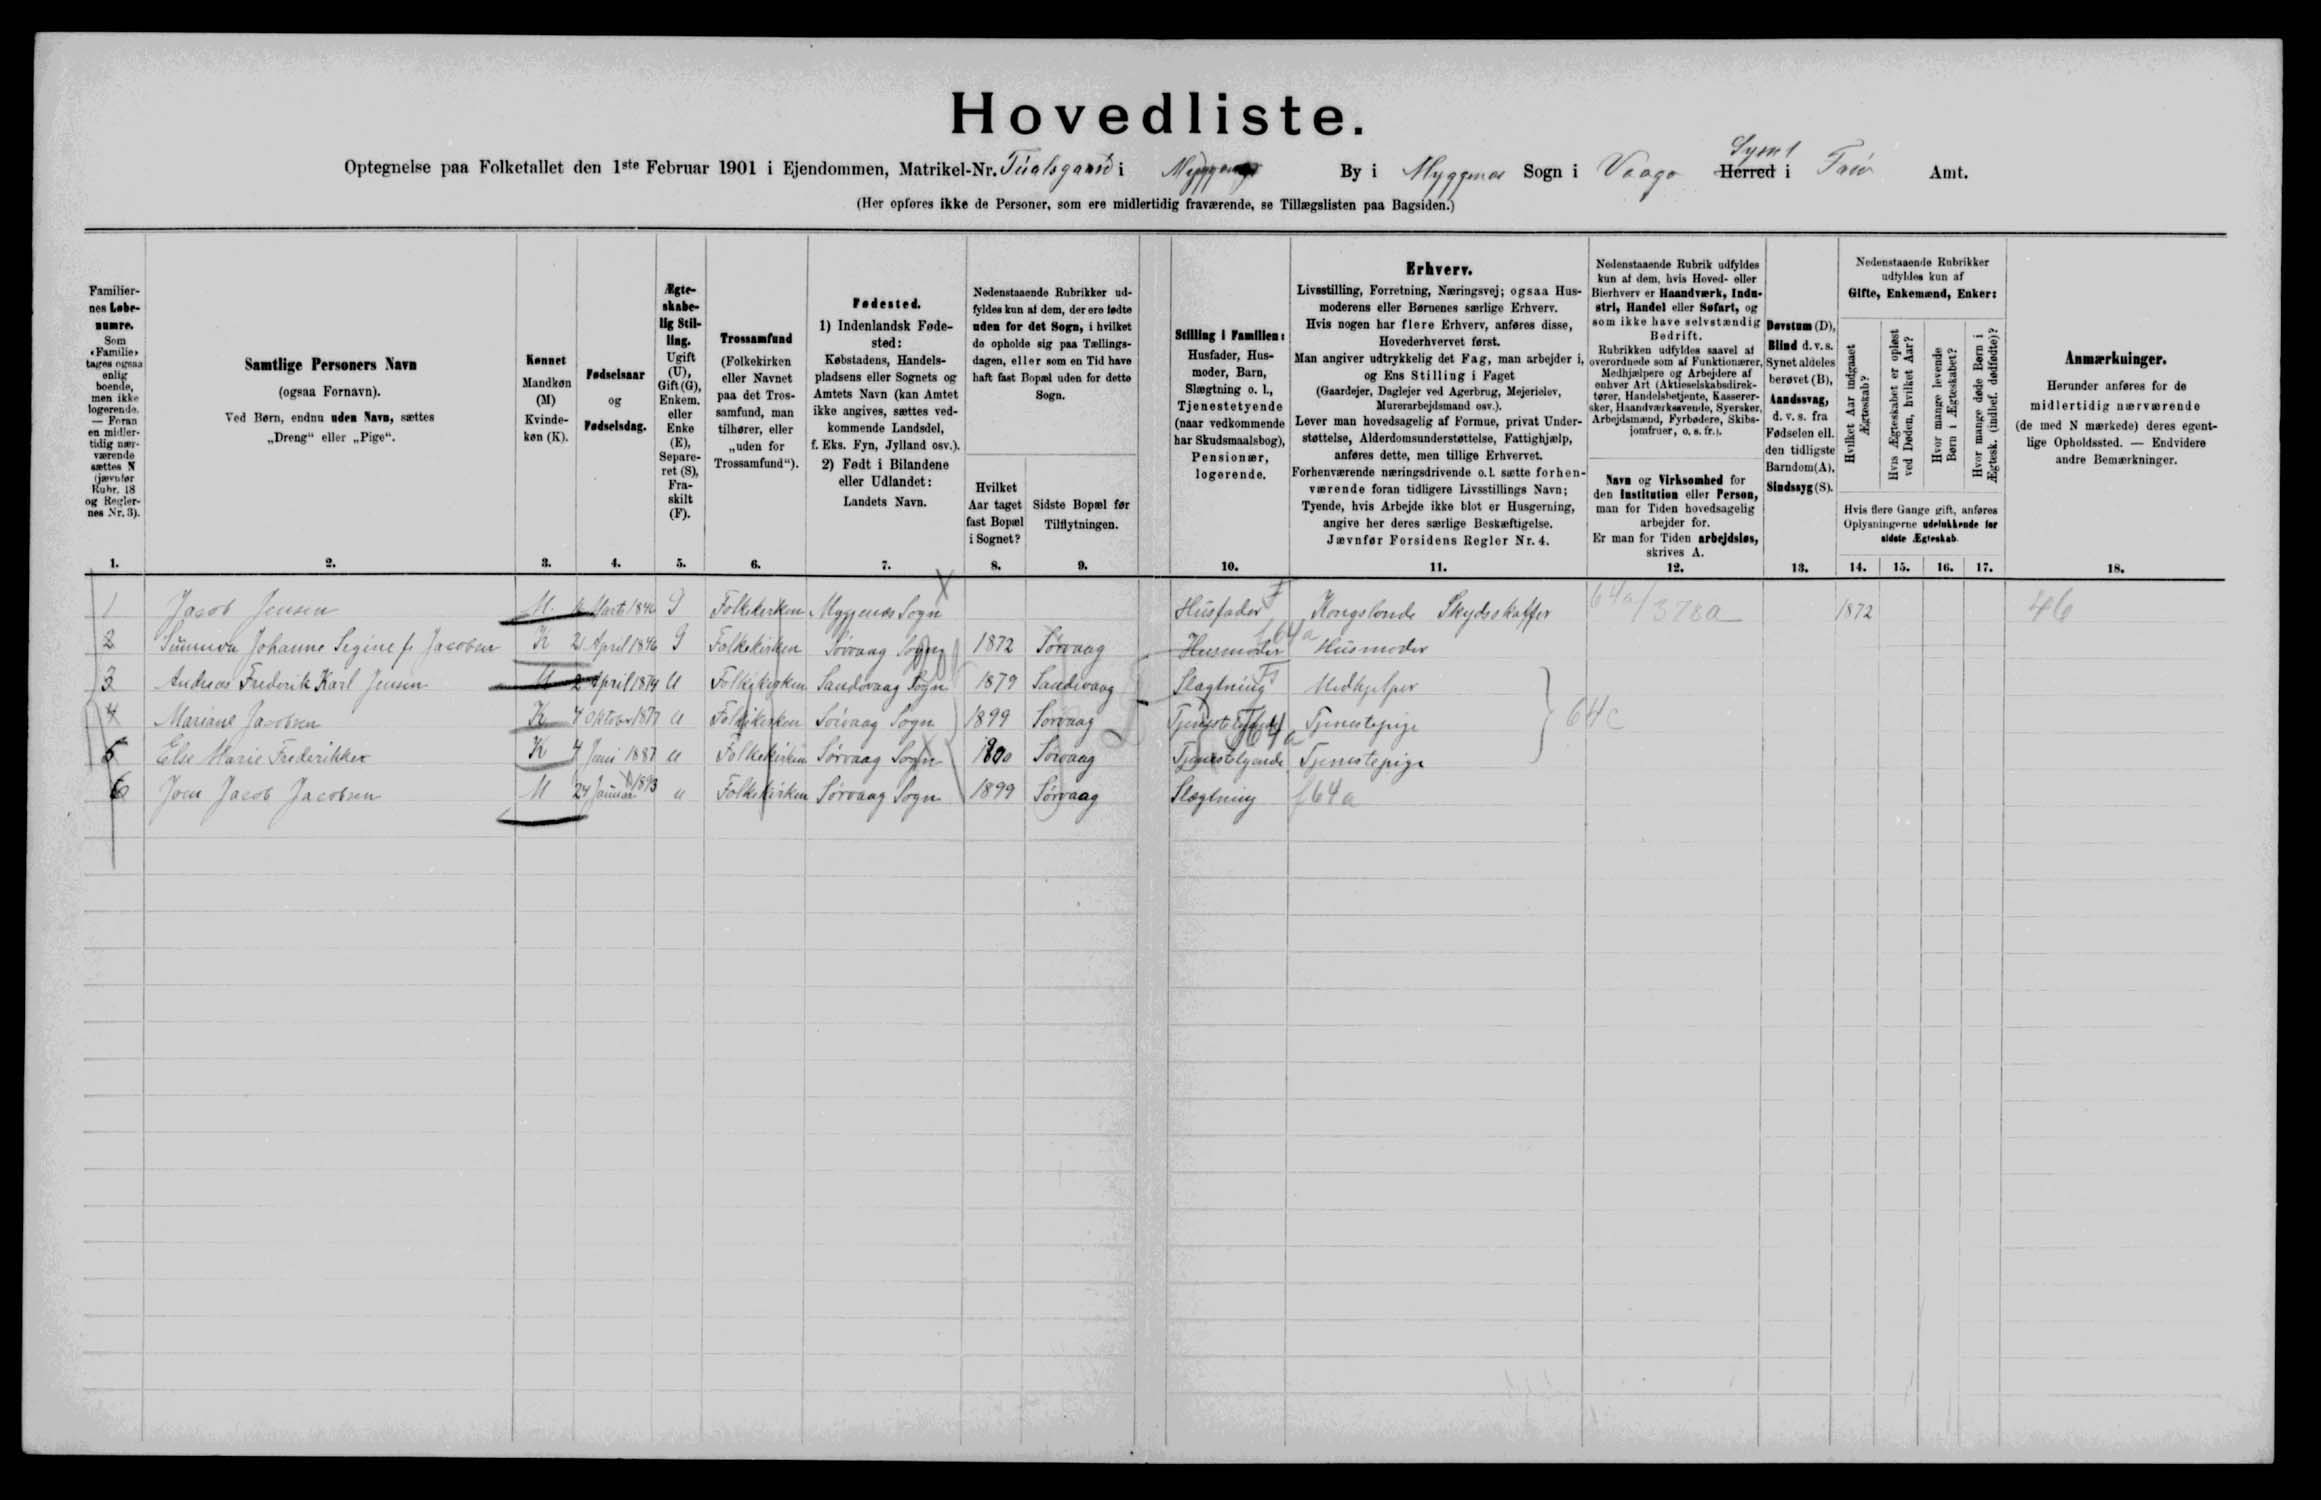 Hovedliste.
Optegnelse paa Folketallet den 1ste Februar 1901 i Ejendommen, Matrikel-Nr. i By i Myggenæs Sogn i Vaagø Syssel Herred i Færø Amt.
(Her opføres ikke de Personer, som ere midlertidig fraværende, se Tillægslisten paa Bagsiden.)
Familier-
nes Løbe-
numre.
Som
«Familie»
tages ogsaa
enlig
boende,
men ikke
logerende.
— Foran
en midler-
tidig nær-
værende
sættes N
(jævnfør
Rubr. 18
og Regler-
nes Nr. 3).
1.
Samtlige Personers Navn
(ogsaa Fornavn).
Ved Børn, endnu uden Navn, sættes
„Dreng“ eller „Pige“.
2.
Kønnet
Mandkøn
(M)
Kvinde-
køn (K).
3.
Fødselsaar
og
Fødselsdag.
4.
Ægte-
skabe-
lig Stil-
ling.
Ugift
(U),
Gift (G),
Enkem.
eller
Enke
(E),
Separe-
ret (S),
Fra-
skilt
(F).
5.
Trossamfund
(Folkekirken
eller Navnet
paa det Tros-
samfund, man
tilhører, eller
„uden for
Trossamfund“).
6.
Fødested.
1) Indenlandsk Føde-
sted:
Købstadens, Handels-
pladsens eller Sognets og
Amtets Navn (kan Amtet
ikke angives, sættes ved-
kommende Landsdel,
f. Eks. Fyn, Jylland osv.).
2) Født i Bilandene
eller Udlandet:
Landets Navn.
7.
Nedenstaaende Rubrikker ud-
fyldes kun af dem, der ere fødte
uden for det Sogn, i hvilket
de opholde sig paa Tællings-
dagen, eller som en Tid have
haft fast Bopæl uden for dette
Sogn.
Hvilket
Aar taget
fast Bopæl
i Sognet?
8.
Sidste Bopæl før
Tilflytningen.
9.
Stilling i Familien:
Husfader, Hus-
moder, Barn,
Slægtning o. l.,
Tjenestetyende
(naar vedkommende
har Skudsmaalsbog),
Pensionær,
logerende.
10.
Erhverv.
Livsstilling, Forretning, Næringsvej; ogsaa Hus-
moderens eller Børnenes særlige Erhverv.
Hvis nogen har flere Erhverv, anføres disse,
Hovederhvervet først.
Man angiver udtrykkelig det Fag, man arbejder i,
og Ens Stilling i Faget
(Gaardejer, Daglejer ved Agerbrug, Mejerielev,
Murerarbejdsmand osv.).
Lever man hovedsagelig af Formue, privat Under-
støttelse, Alderdomsunderstøttelse, Fattighjælp,
anføres dette, men tillige Erhvervet.
Forhenværende næringsdrivende o. l. sætte forhen-
værende foran tidligere Livsstillings Navn;
Tyende, hvis Arbejde ikke blot er Husgerning,
angive her deres særlige Beskæftigelse.
Jævnfør Forsidens Regler Nr. 4.
11.
Nedenstaaende Rubrik udfyldes
kun af dem, hvis Hoved- eller
Bierhverv er Haandværk, Indu-
stri, Handel eller Søfart, og
som ikke have selvstændig
Bedrift.
Rubrikken udfyldes saavel af
overordnede som af Funktionærer,
Medhjælpere og Arbejdere af
enhver Art (Aktieselskabsdirek-
tører, Handelsbetjente, Kasserer-
sker, Haandværkssvende, Syersker,
Arbejdsmænd, Fyrbødere, Skibs-
jomfruer, o. s. fr.).
Navn og Virksomhed for
den Institution eller Person,
man for Tiden hovedsagelig
arbejder for.
Er man for Tiden arbejdsløs,
skrives A.
12.
Døvstum (D),
Blind d. v. s.
Synet aldeles
berøvet (B),
Aandssvag,
d. v. s. fra
Fødselen ell.
den tidligste
Barndom (A),
Sindssyg (S).
13.
Nedenstaaende Rubrikker
udfyldes kun af
Gifte, Enkemænd, Enker:
Hvilket Aar indgaaet
Ægteskab?
Hvis Ægteskabet er opløst
ved Døden, hvilket Aar?
Hvor mange levende
Børn i Ægteskabet?
Hvor mange døde Børn i
Ægtesk. (indbef. dødfødte)?
Hvis flere Gange gift, anføres
Oplysningerne udelukkende for
sidste Ægteskab.
14. 15. 16. 17.
Anmærkninger.
Herunder anføres for de
midlertidig nærværende
(de med N mærkede) deres egent-
lige Opholdssted. — Endvidere
andre Bemærkninger.
18.
1 Jacob Jensen M. Marts 1846 G Folkekirken Myggenæs Sogn Husfader Kongsbonde Skydsskaffer 64a/378a 1872 46
2 Sunneva Johanne f. Jacobsen K 21 April 1846 G Folkekirken Sørvaag Sogn 1872 Sørvaag Husmoder Husmoder
3 Andreas Frederik Karl Jensen M 2 April 1874 U Folkekirken Sandevaag Sogn 1879 Sandevaag Slægtning Medhjelper
4 Mariane Jacobsen K 4 Oktober 1877 U Folkekirken Sørvaag Sogn 1899 Sørvaag Tjenestetyende Tjenestepige 64c
5 Else Marie Frederikker K 4 Juni 1887 U Folkekirken Sørvaag Sogn 1900 Sørvaag Tjenestetyende Tjenestepige
6 Joen Jacob Jacobsen M 24 Januar 1893 u Folkekirken Sørvaag Sogn 1899 Sørvaag Slægtning f64a